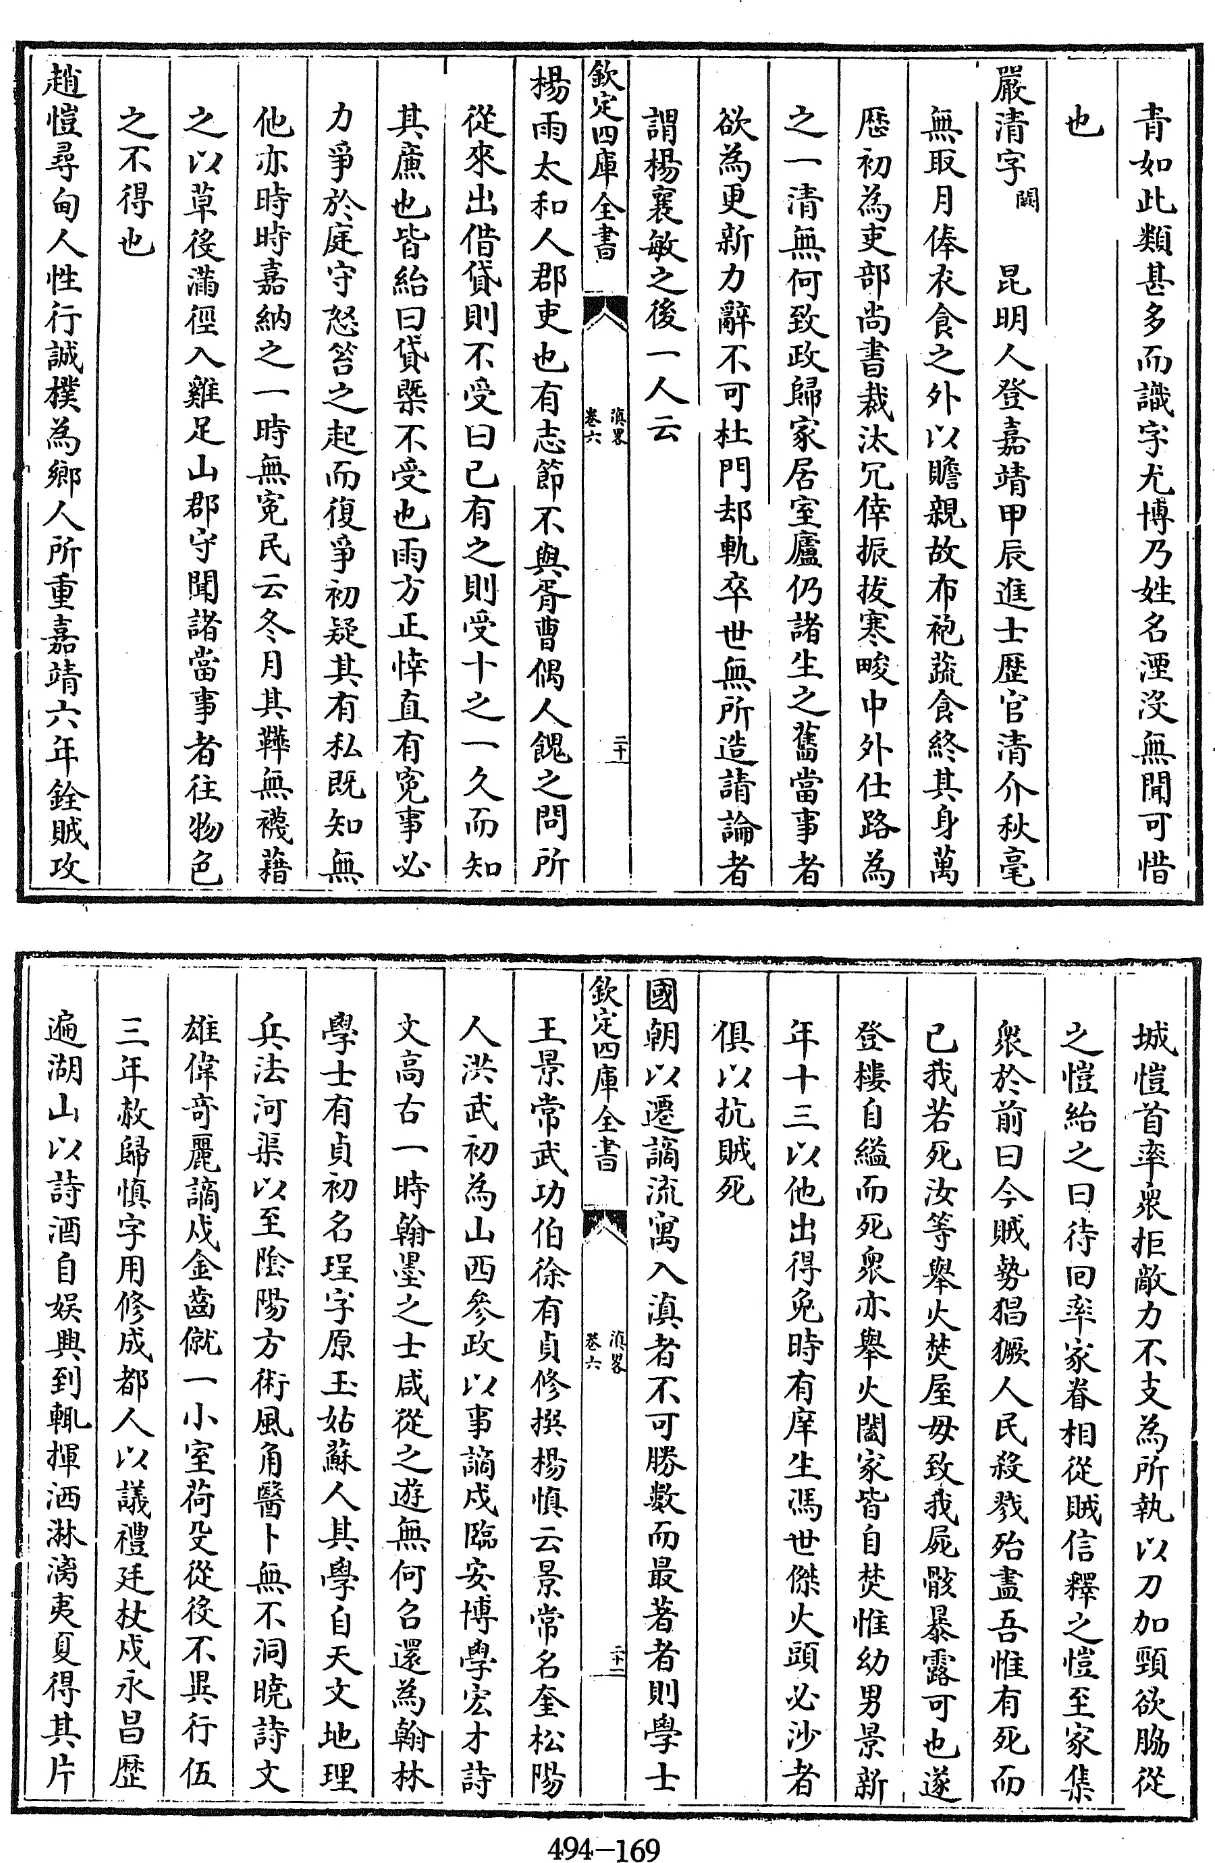 青如此類甚多而識字尤博乃姓名湮没無聞可惜
也
嚴清字闕昆明人登嘉靖甲辰進士歴官清介秋毫
無取月俸衣食之外以贍親故布袍蔬食終其身萬
厯初為吏部尚書裁汰冗倖振拔寒畯中外仕路為
之一清無何致政歸家居室廬仍諸生之舊當事者
欲為更新力辭不可杜門却軌卒世無所造請論者
謂楊襄敏之後一人云
欽定四庫全書
滇畧
卷六
二十一
楊雨太和人郡吏也有志節不與胥曹偶人餽之問所
從來出借貸則不受曰已有之則受十之一久而知
其亷也皆紿曰貸槩不受也雨方正悻直有寃事必
力爭於庭守怒笞之起而復爭初疑其有私既知無
他亦時時嘉納之一時無寃民云冬月其鞾無襪藉
之以草後滿徑入雞足山郡守聞諸當事者往物色
之不得也
趙愷尋甸人性行誠樸為鄉人所重嘉靖六年銓賊攻
城愷首率衆拒敵力不支為所執以刀加頸欲脇從
之愷紿之曰待回率家眷相從賊信釋之愷至家集
衆於前曰今賊勢猖獗人民殺戮殆盡吾惟有死而
已我若死汝等舉火焚屋毋致我屍骸暴露可也遂
登樓自縊而死衆亦舉火闔家皆自焚惟幼男景新
年十三以他出得免時有庠生馮世傑火頭必沙者
俱以抗賊死
國朝以遷謫流寓入滇者不可勝數而最著者則學士
欽定四庫全書
滇畧
卷六
二十二
王景常武功伯徐有貞修撰楊慎云景常名奎松陽
人洪武初為山西參政以事謫戍臨安博學宏才詩
文高古一時翰墨之士咸從之遊無何召還為翰林
學士有貞初名珵字原玉姑蘇人其學自天文地理
兵法河渠以至陰陽方術風角醫卜無不洞曉詩文
雄偉竒麗謫戍金齒僦一小室荷殳從役不異行伍
三年赦歸慎字用修成都人以議禮廷杖戍永昌歴
遍湖山以詩酒自娱興到輒揮洒淋漓夷夏得其片
494-169